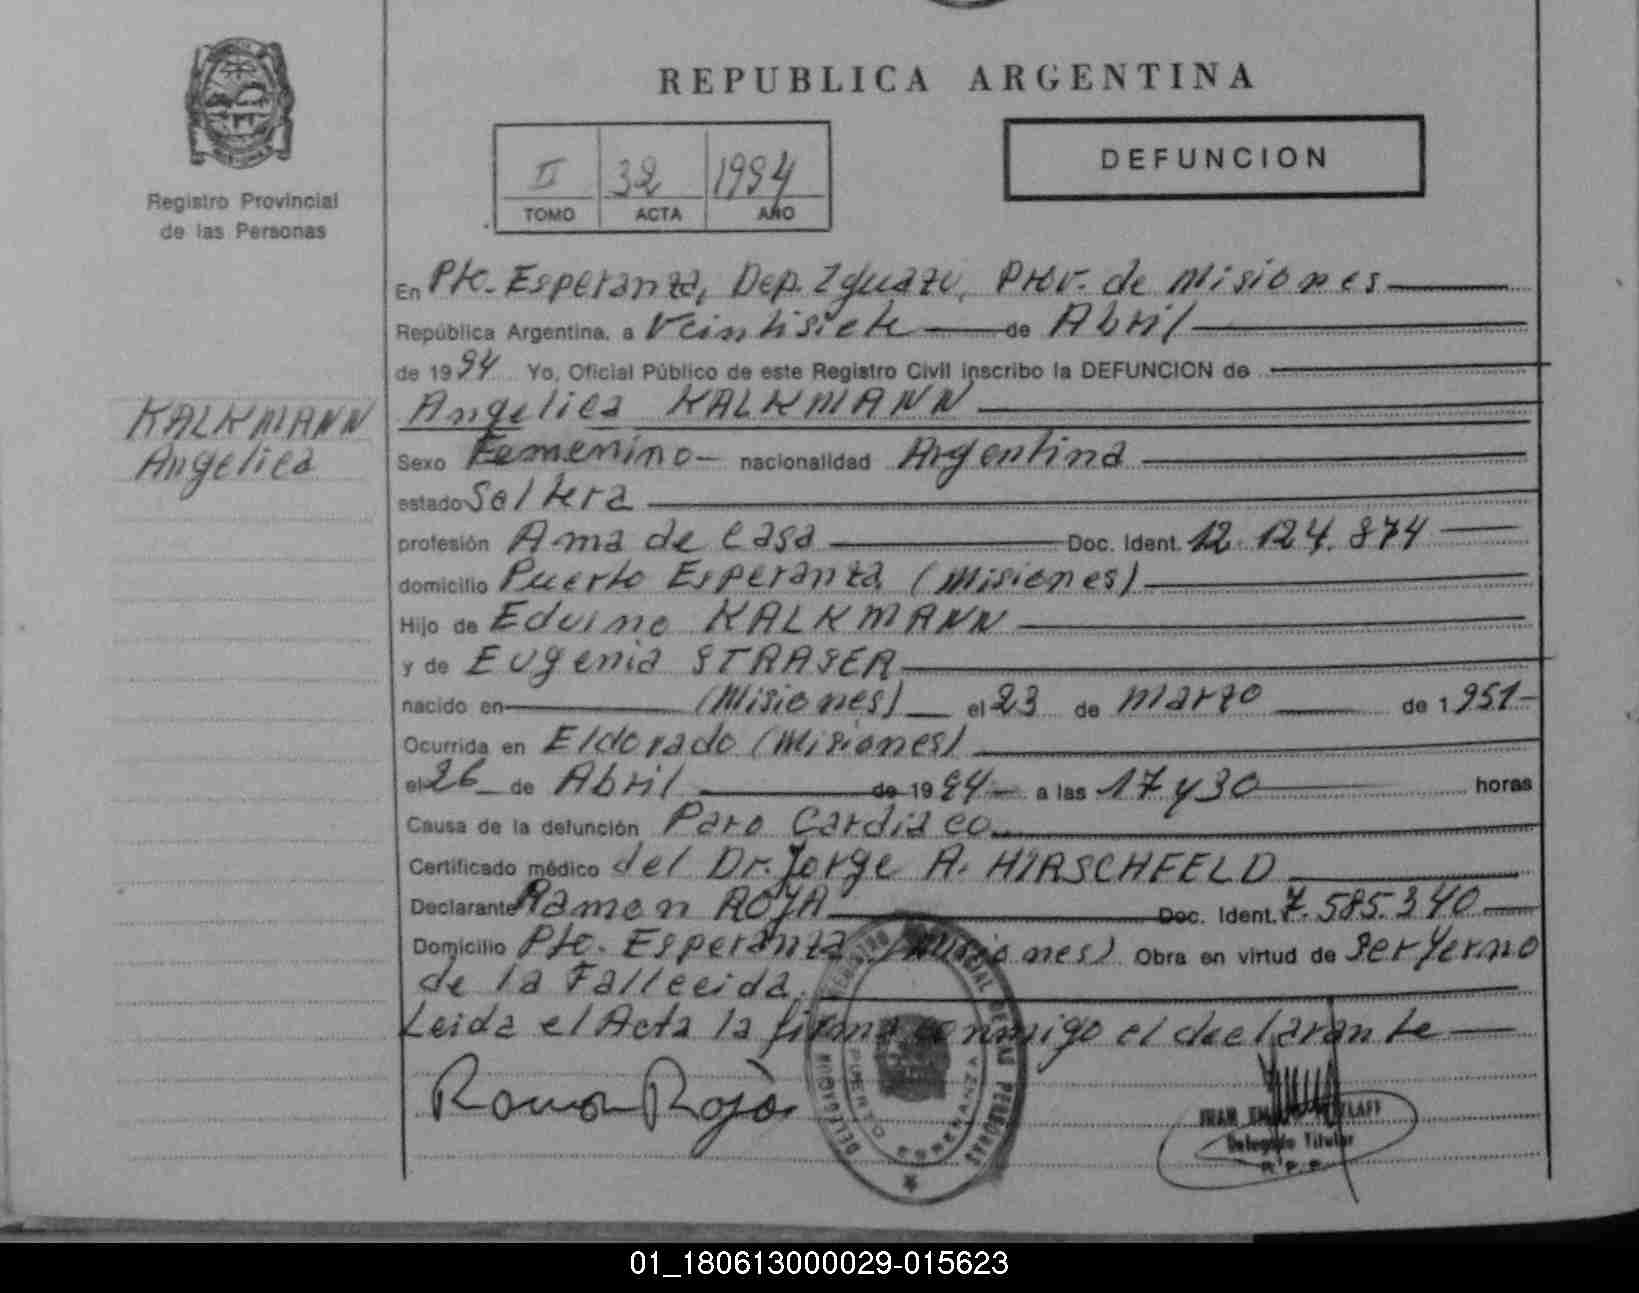 REPUBLICA ARGENTINA
Registro Provincial
de las Personas
II 32 1994
TOMO ACTA AÑO
DEFUNCION
KALKMANN
Angelica
En Pto. Esperanza, Dep. Iguazu, Prov. de Misiones
República Argentina, a Veintisiete de Abril
de 1994 Yo, Oficial Público de este Registro Civil inscribo la DEFUNCION de
Angelica KALKMANN
Sexo Femenino nacionalidad Argentina
estado Soltera
profesión Ama de Casa Doc. Ident. 12.124.874
domicilio Puerto Esperanza (Misiones)
Hijo de Eduino KALKMANN
y de Eugenia STRASER
nacido en (Misiones) el 23 de Marzo de 1951
Ocurrida en Eldorado (Misiones)
el 26 de Abril de 1994 a las 17 y 30 horas
Causa de la defunción Paro Cardiaco
Certificado médico del Dr. Jorge A. HIRSCHFELD
Declarante Ramon ROJA Doc. Ident. 7.585.340
Domicilio Pto. Esperanza (Misiones) Obra en virtud de ser Yerno
de la Fallecida.
Leida el Acta la firma conmigo el declarante
Ramon Roja
REGISTRO PROVINCIAL DE LAS PERSONAS
DELEGACION
PUERTO ESPERANZA
Delegado Titular
R.P.P.
01_180613000029-015623